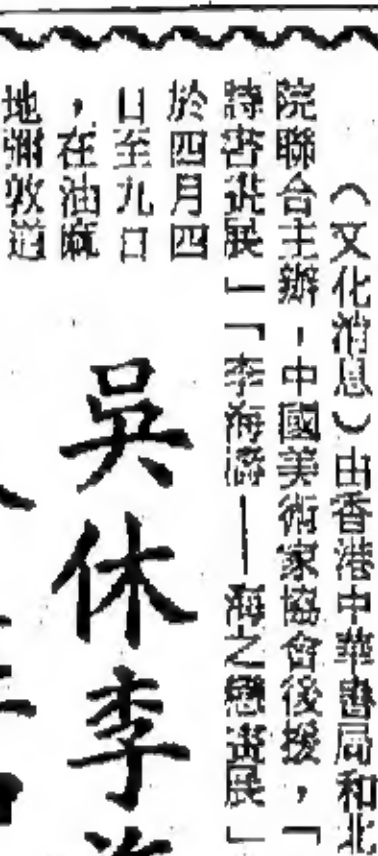 （文化消息）由香港中華書局和北
院聯合主辦，中國美術家協會後援，「
詩書畫展」「李海濤——海之戀畫展」
於四月四
日至九日
，在油麻
地彌敦道
吳休李海